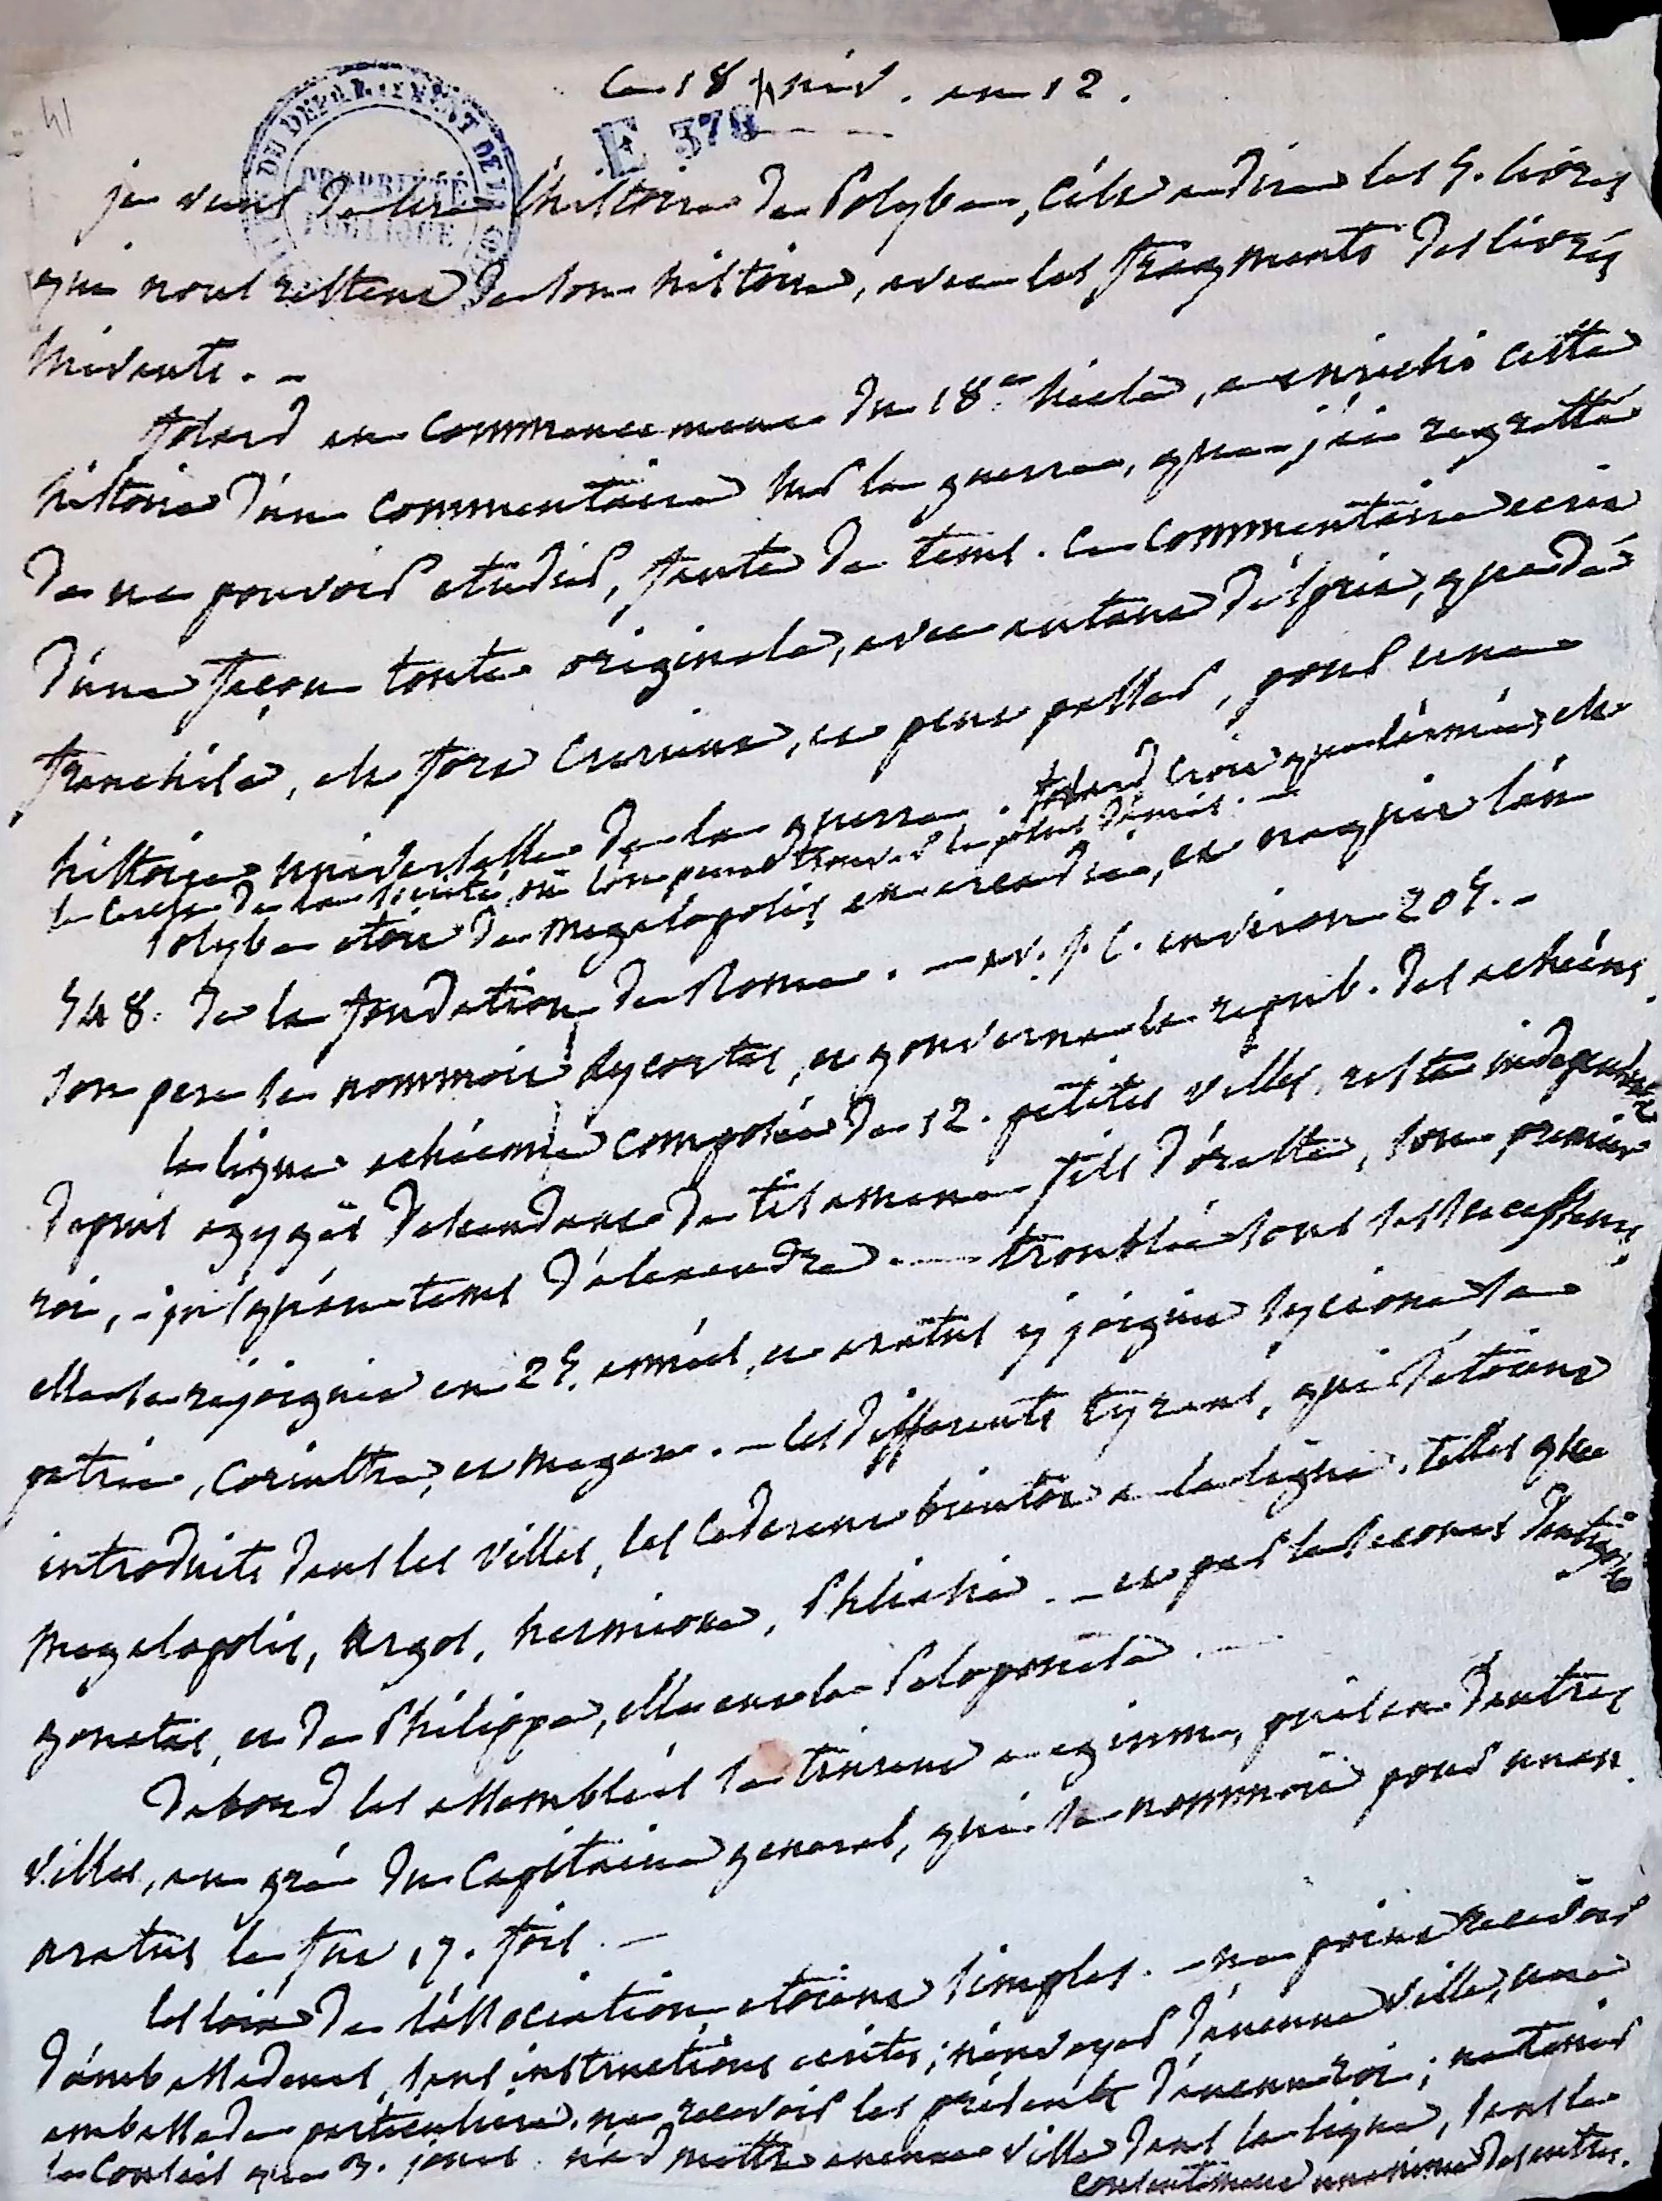 41
Ce 18 niv. an 12.
E 378
DU DEPARTEMENT DE L'
PROPRIÉTÉ
PUBLIQUE
je viens de lire l'histoire de Polybe, c'est a dire les 5. livres
qui nous restent de son histoire, avec les fragments des livres
suivants. -
folard au commencement du 18e. siecle, a enrichi cette
histoire d'un commentaire sur la guerre, que j'ai regretté
de ne pouvoir etudier, faute de tems. Ce commentaire ecrit
d'une façon toute originale, avec autant d'esprit, que de
franchise, est fort curieux, et peut passer, pour une
histoire universelle de la guerre. folard croit que l'armée, est
la classe de la société, où l'on peut trouver le plus d'amis. -
Polybe etoit de Megalopolis en arcadie, et naquit l'an
548. de la fondation de Rome. - av. J. C. environ 205. -
son pere se nommoit Lycortas, et gouverna la repub. des achéens.
la ligue achéenne composée de 12. petites villes, resta independante
depuis ogygès descendant de tisamene fils d'oreste, son premier
roi, jusqu'au tems d'alexandre - troublée sous ses successeurs,
elle se rejoignit en 25. années, et aratus y joignit sycione sa
patrie, Corinthe, et megare. - les differents tyrans, qui s'etoient
introduits dans les villes, les cederent bientot a la ligue. telles que
Megalopolis, Argos, hermione, Phliasie. - et par le secours d'antigone
gonatas, et de Philippe, elle eut le Peloponese. -
d'abord les assemblées se tinrent a egium, puis en d'autres
villes, au gré du Capitaine general, qui se nommoit pour un an.
aratus le fut 17. fois. -
les loix de l'association etoient simples. - ne point recevoir
d'ambassadeurs, sans instructions ecrites; n'envoyer d'aucune ville, une
ambassade particuliere. ne recevoir les présents d'aucun roi; ne tenir
le Conseil que 3. jours. n'admettre aucune ville dans la ligue, sans le
consentement unanime des autres.